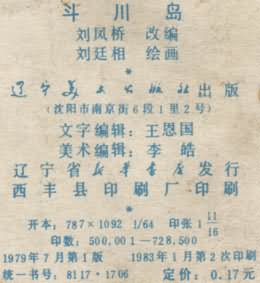 斗川岛
刘凤桥 改编
刘廷相 绘画
*
辽宁美术出版社出版
(沈阳市南京街6段1里2号)
文字编辑：王恩国
美术编辑：李皓
辽宁省新华书店发行
西丰县印刷厂印刷
*
开本：787×1092 1/64 印张1 11/16
印数：500,001—728,500
1979年7月第1版 1983年1月第2次印刷
统一书号：8117·1706 定价：0.17元